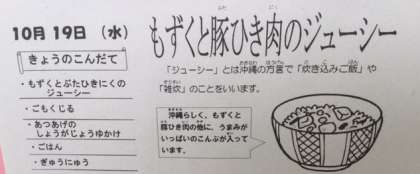 10月19日 (水)
きょうのこんだて
・もずくとぶたひきにくの
ジューシー
・ごもくじる
・あつあげの
しょうがじょうゆかけ
・ごはん
・ぎゅうにゅう
もずくと豚ひき肉のジューシー
「ジューシー」とは沖縄の方言で「炊き込みご飯」や
「雑炊」のことをいいます。
沖縄らしく、もずくと
豚ひき肉の他に、うまみが
いっぱいのこんぶが入って
います。